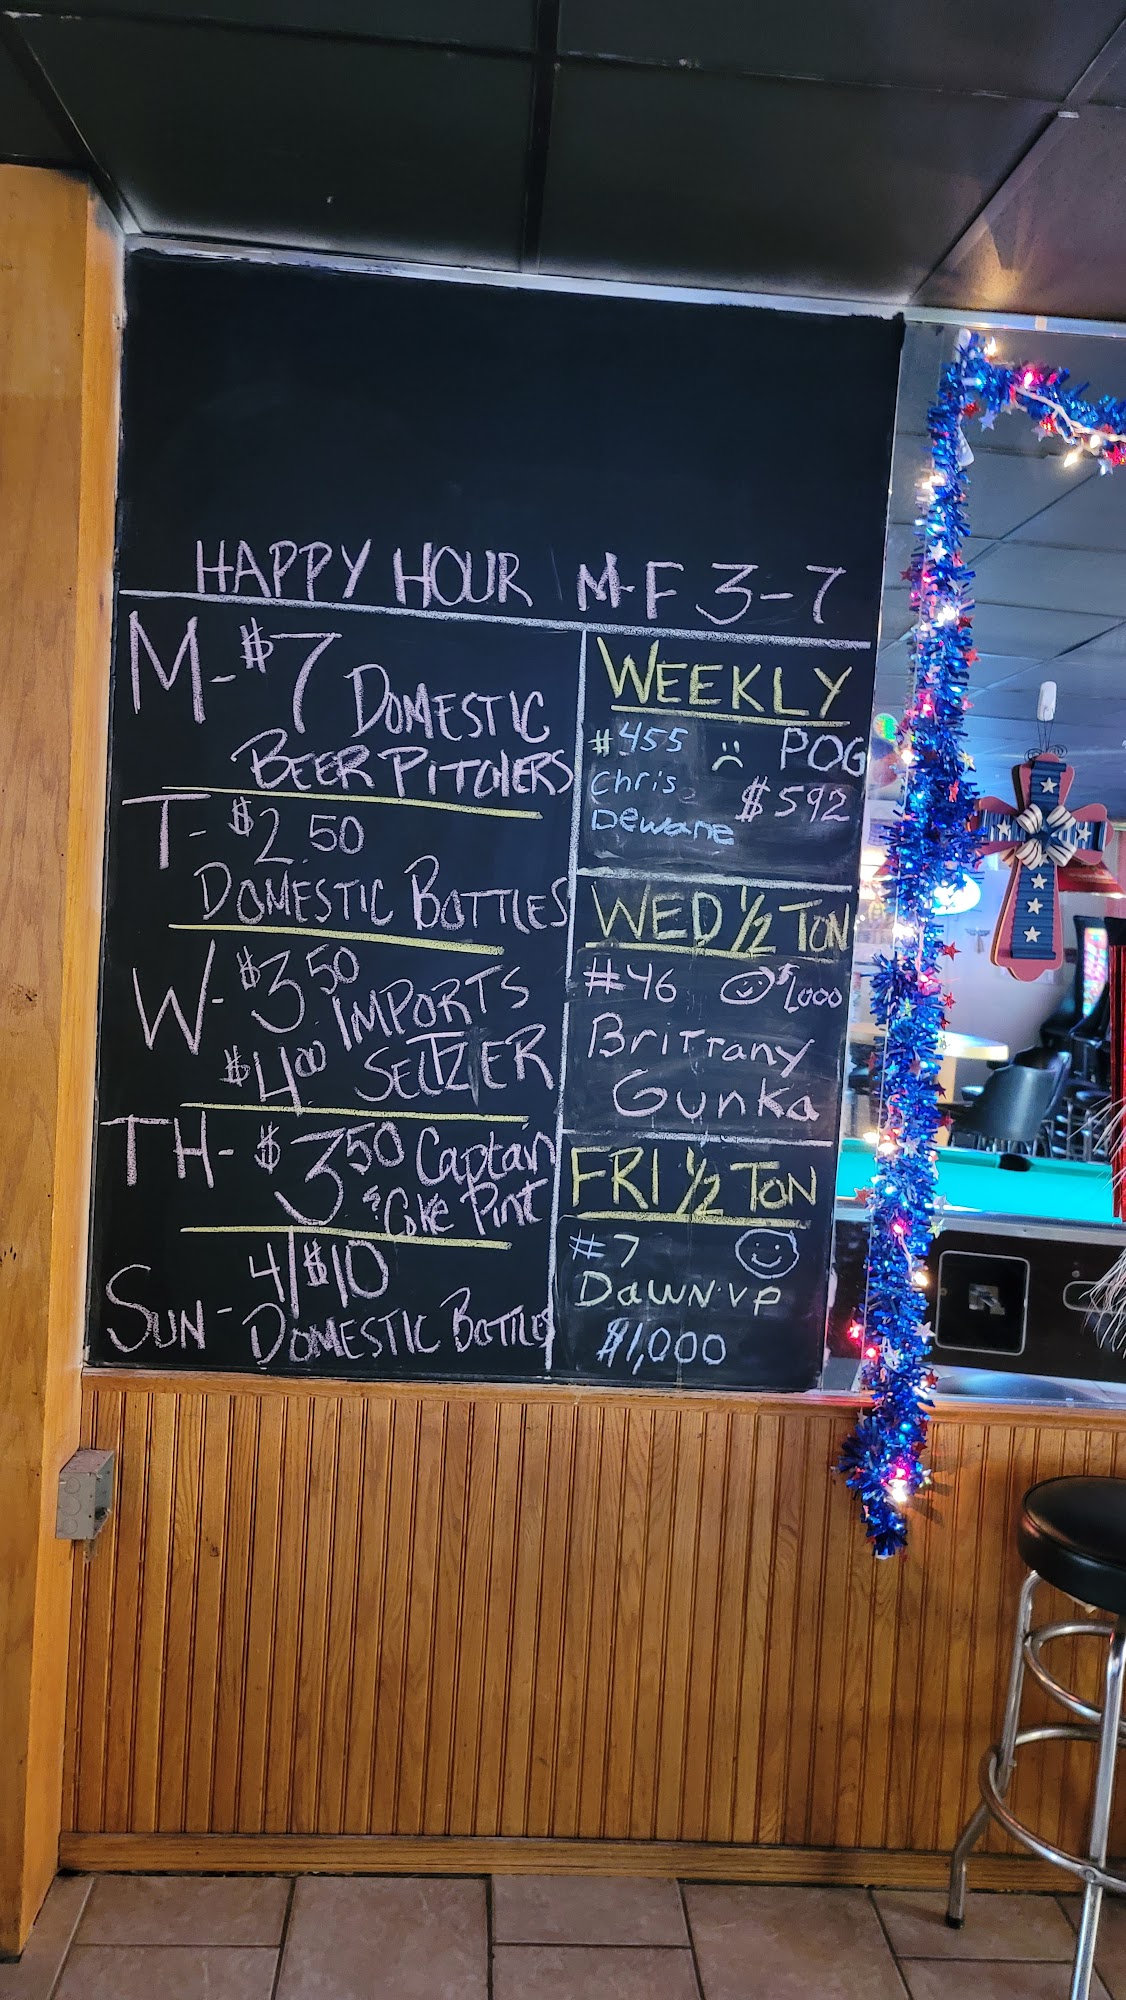 HAPPY HOUR M-F 3-7
M-$7 DOMESTIC
BEER PITCHERS
T- $2.50
DOMESTIC BOTTLES
W- $3.50 IMPORTS
$4.00 SELTZER
TH- $3.50 Captain
& Coke Pint
4/$10
SUN- DOMESTIC BOTTLES
WEEKLY
#455 POG
Chris $592
Dewane
WED 1/2 TON
#46 $1,000
Brittany
Gunka
FRI 1/2 TON
#7
Dawn VP
$1,000